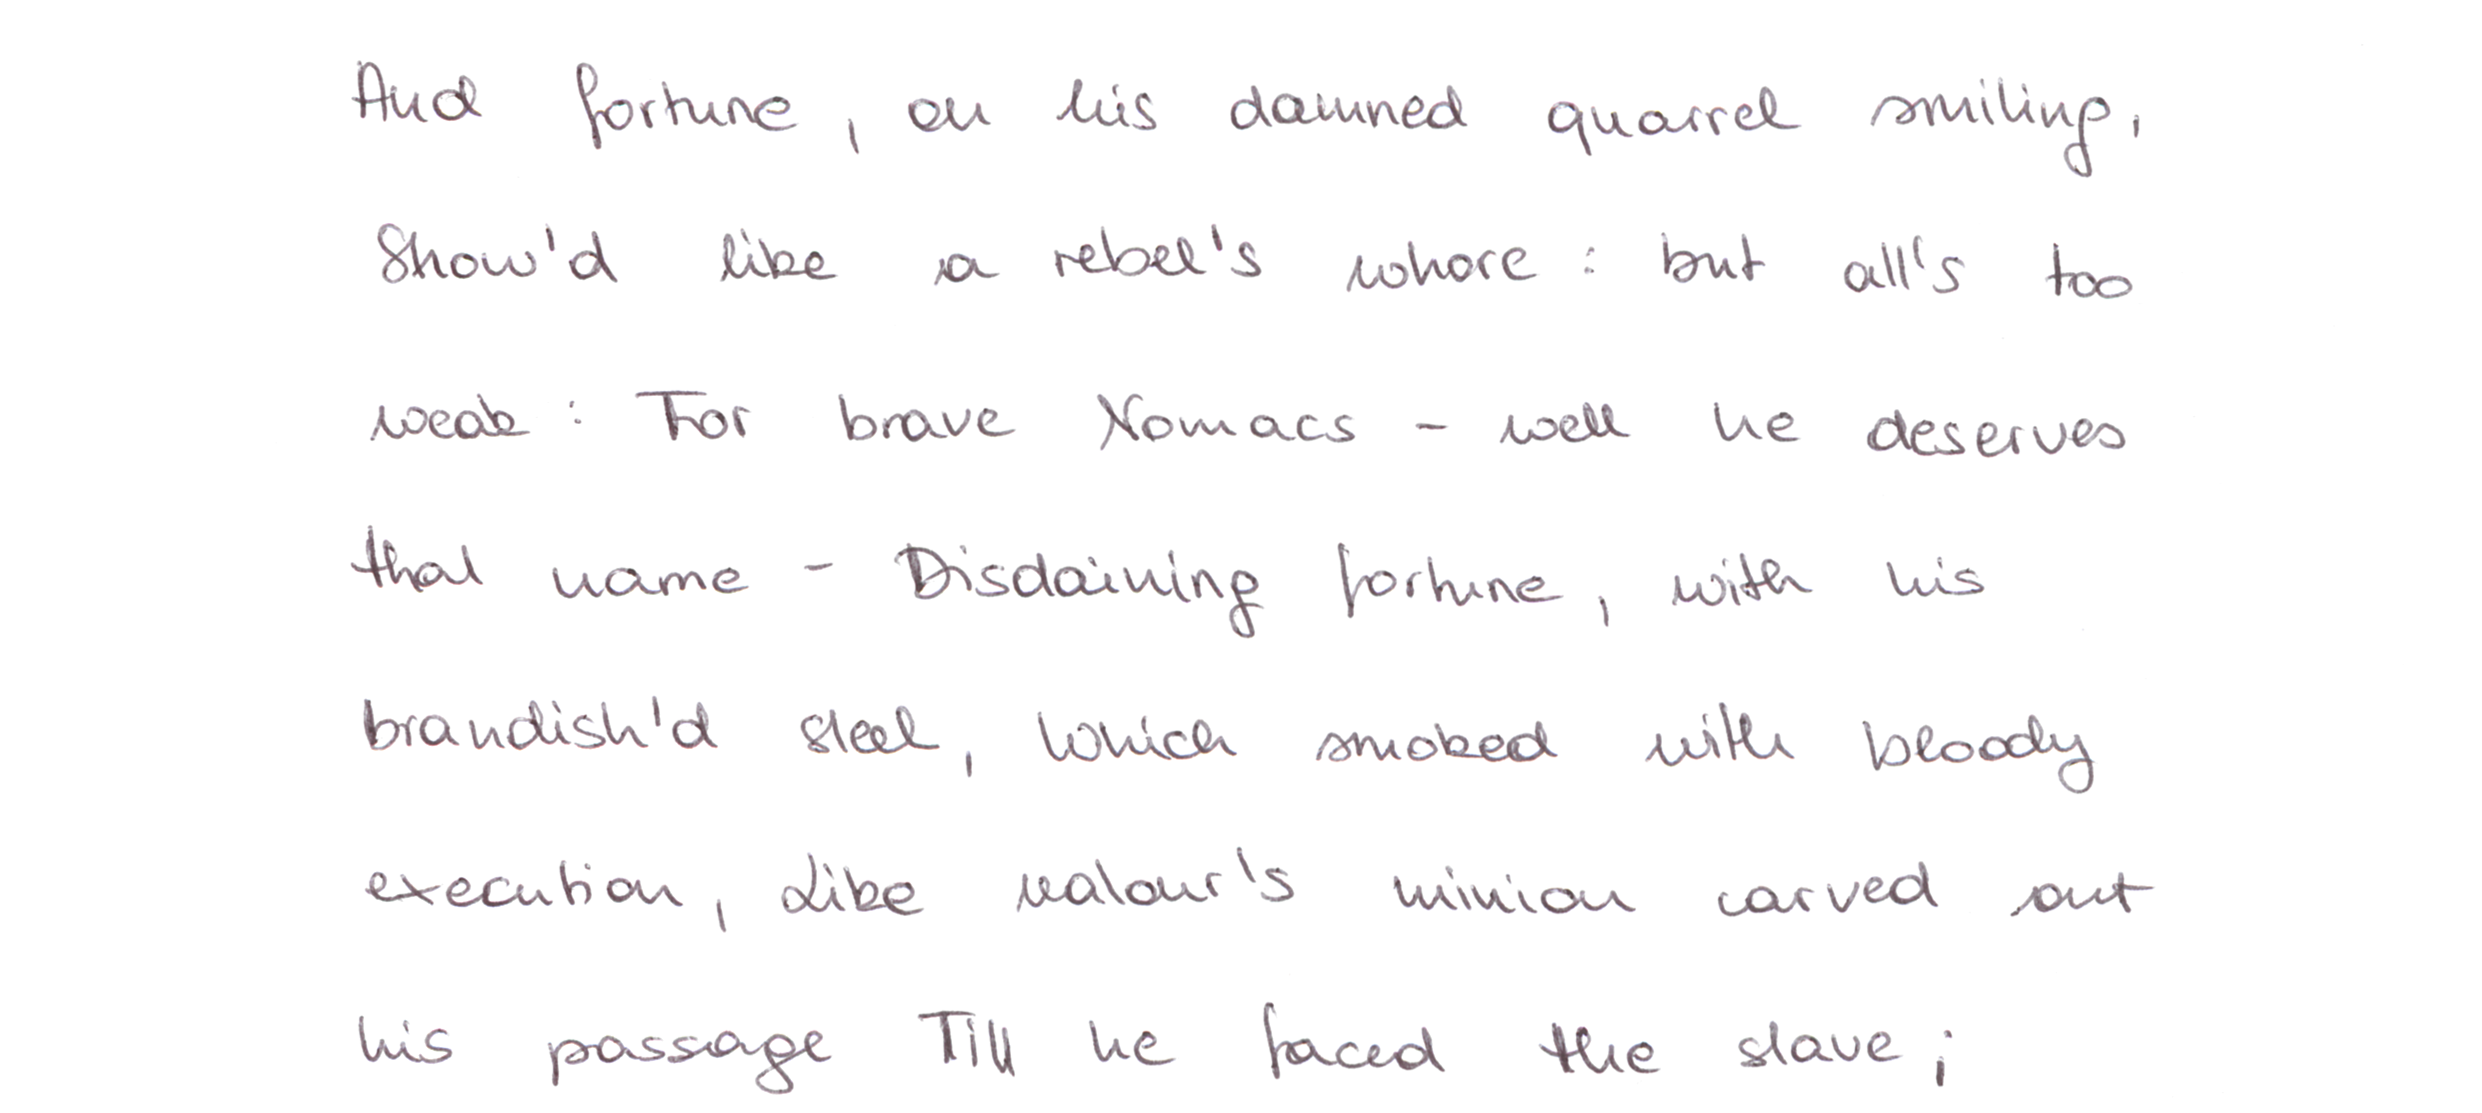 And fortune, on his damned quarrel smiling,
Show'd like a rebel's whore : but all's too
weak : For brave Nomacs - well he deserves
that name - Disdaining fortune, with his
brandish'd steel, Which smoked with bloody
execution, Like valour's minion carved out
his passage Till he faced the slave;